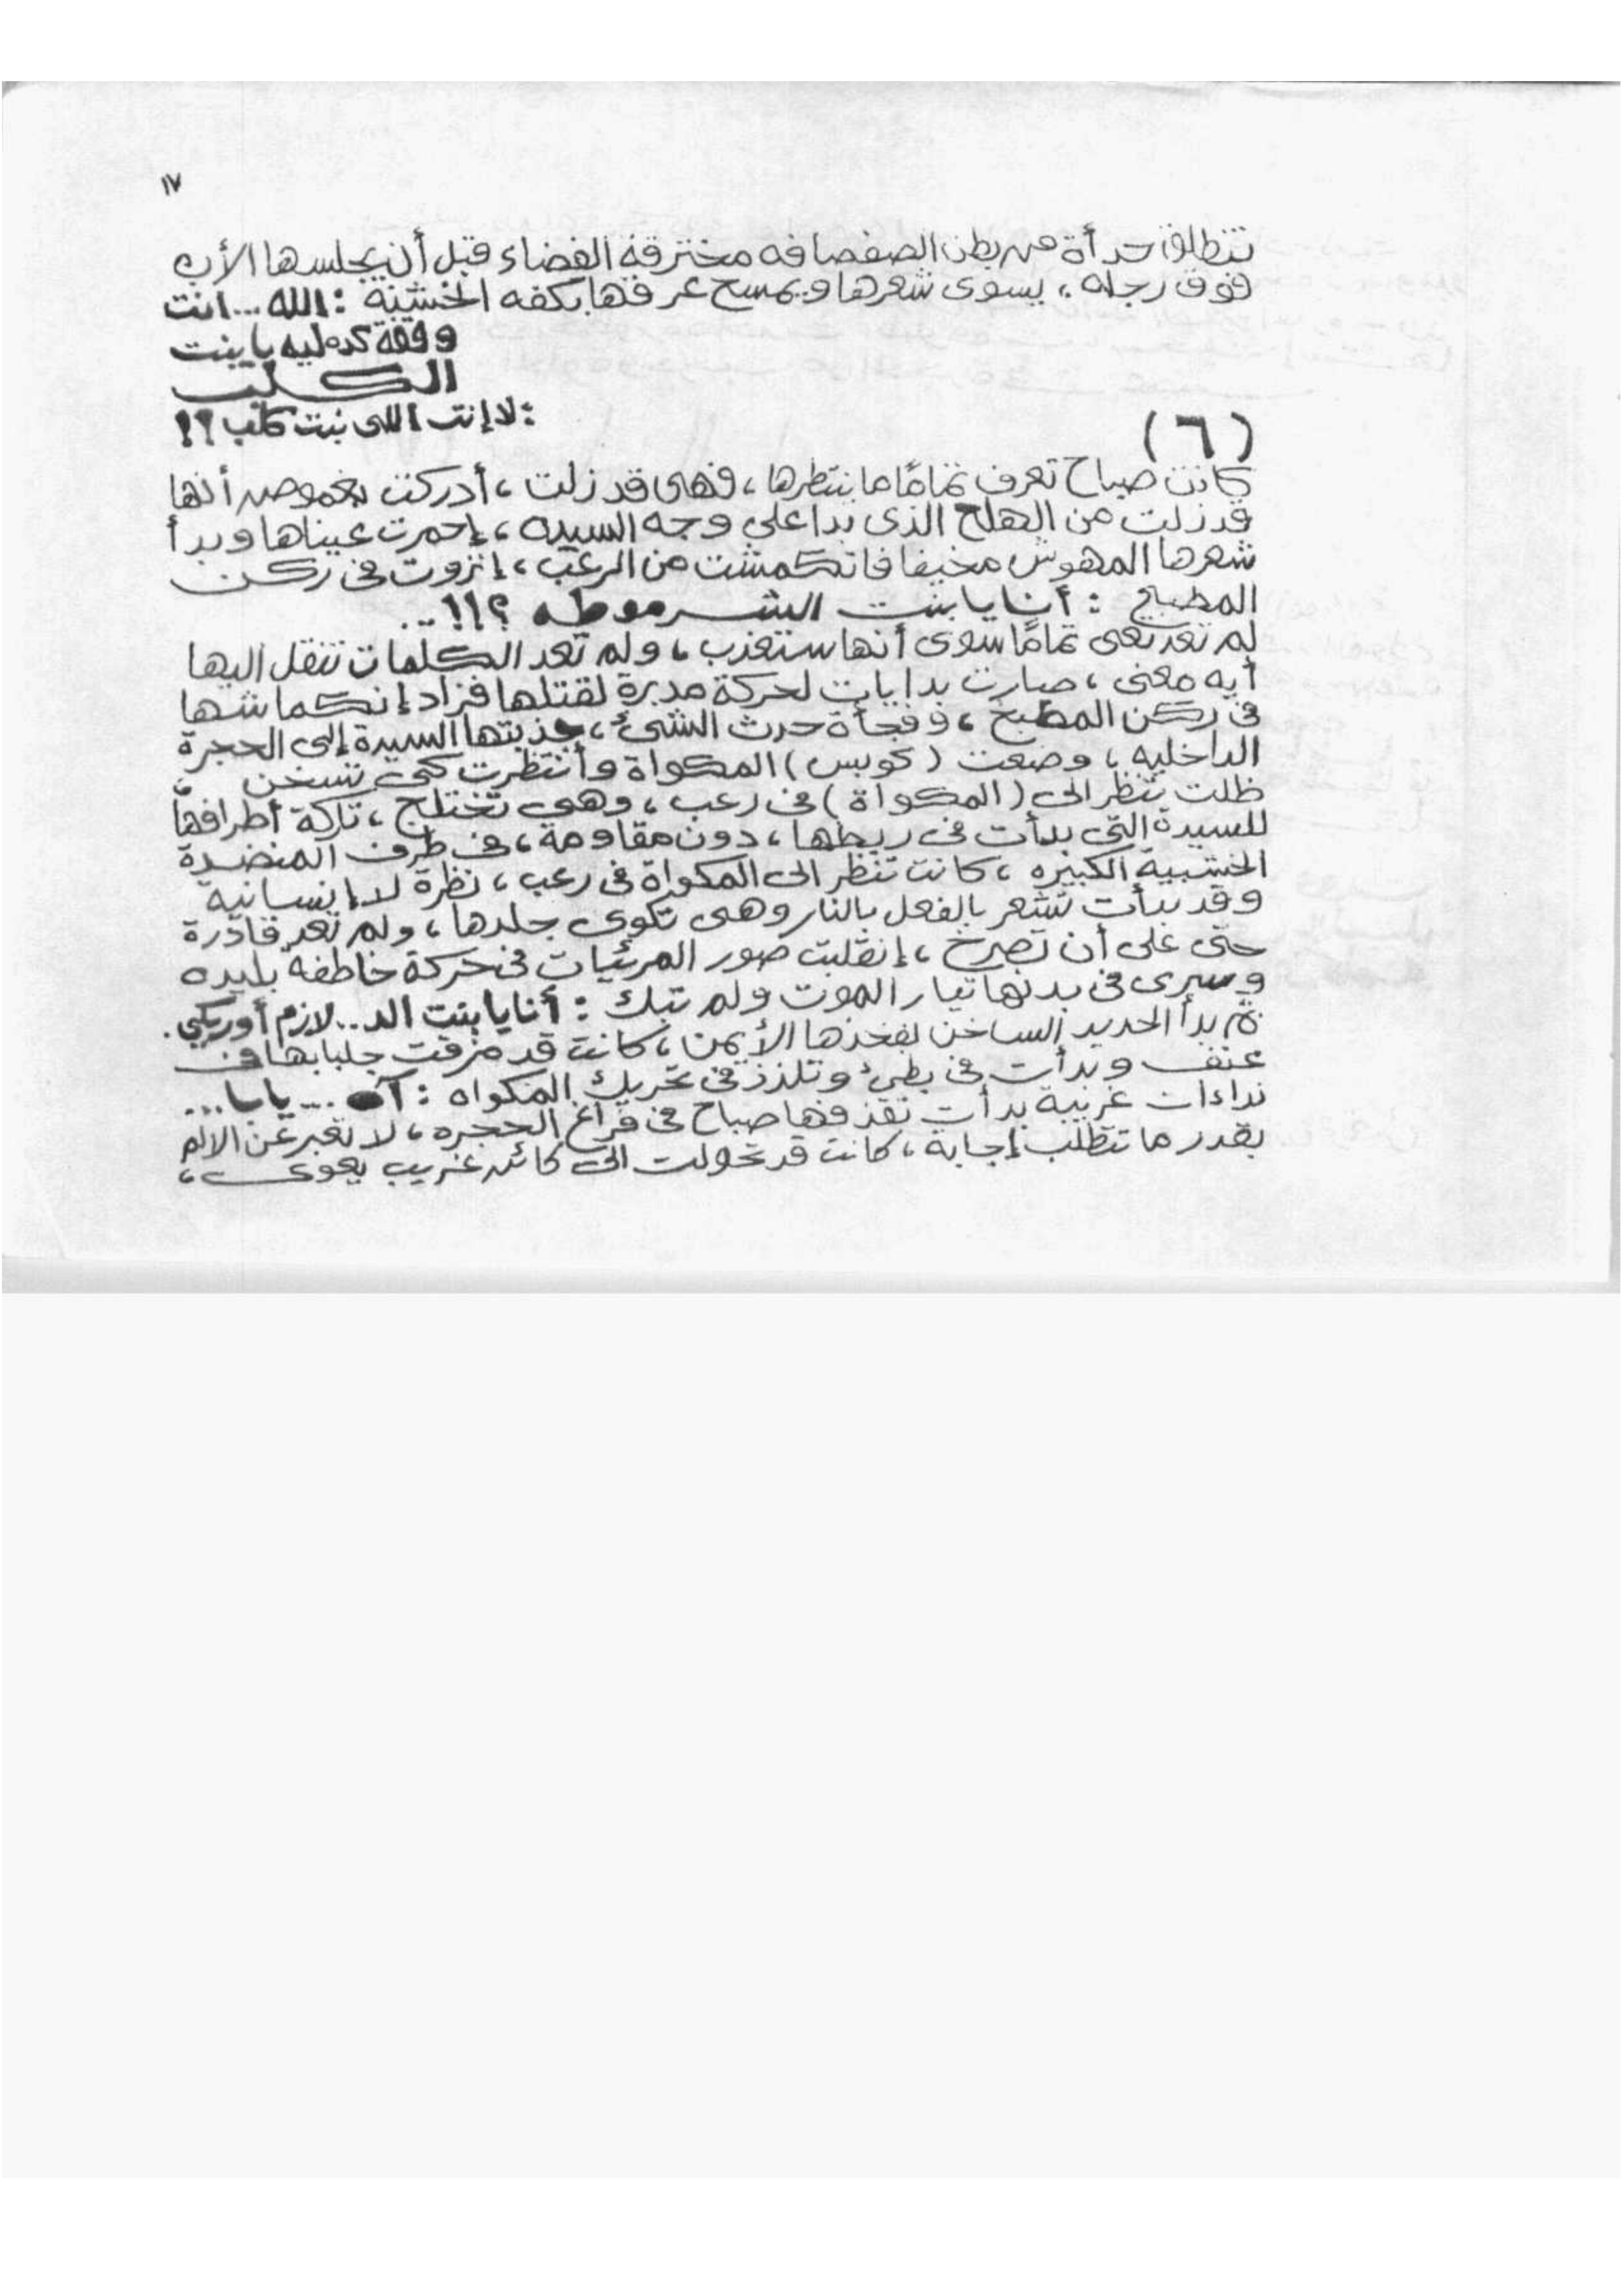 ١٧
تنطلق حدأة من بطن الصفصافه مخترقة الفضاء قبل أن يجلسها الأب
فوق رجله ، يسوى شعرها ويمسح عرقها بكفه الخشنة : الله ... انت
وقفة كده ليه يا بنت
الكلب
: لا إنت اللى بنت كلب ؟!
(٦)
كانت صباح تعرف تمامًا ما ينتظرها ، فهى قد زلت ، أدركت بغموض أنها
قد زلت من الهلع الذى بدا على وجه السيده ، إحمرت عيناها وبدأ
شعرها المهوش مخيفا فانكمشت من الرعب ، إنزوت فى ركن
المطبخ : أنا يا بنت الشرموطه ؟!! ...
لم تعد تعى تمامًا سوى أنها ستعذب ، ولم تعد الكلمات تنقل اليها
أيه معنى ، صارت بدايات لحركة مدبرة لقتلها فزاد إنكماشها
فى ركن المطبخ ، وفجأة حدث الشئ ، جذبتها السيدة إلى الحجرة
الداخليه ، وضعت (كوبس) المكواة وأنتظرت كى تسخن ،
ظلت تنظر الى (المكواة) فى رعب ، وهى تختلج ، تاركة أطرافها
للسيدة التى بدأت فى ربطها ، دون مقاومة ، فى طرف المنضدة
الخشبية الكبيره ، كانت تنظر الى المكواة فى رعب ، نظرة لا إنسانية
وقد بدأت تشعر بالفعل بالنار وهى تكوى جلدها ، ولم تعد قادرة
حتى على أن تصرخ ، إنقلبت صور المرئيات فى حركة خاطفه بليده
وسرى فى بدنها تيار الموت ولم تبك : أنا يا بنت الـ .. لازم أوريكى .
ثم بدأ الحديد الساخن بفخذها الأيمن ، كانت قد مزقت جلبابها فى
عنف وبدأت فى بطئ وتلذذ فى تحريك المكواه : آه ... يابا ...
نداءات غريبة بدأت تقذفها صباح فى فراغ الحجره ، لا تعبر عن الالم
بقدر ما تتطلب إجابة ، كانت قد تحولت الى كائن غريب يعوى ،